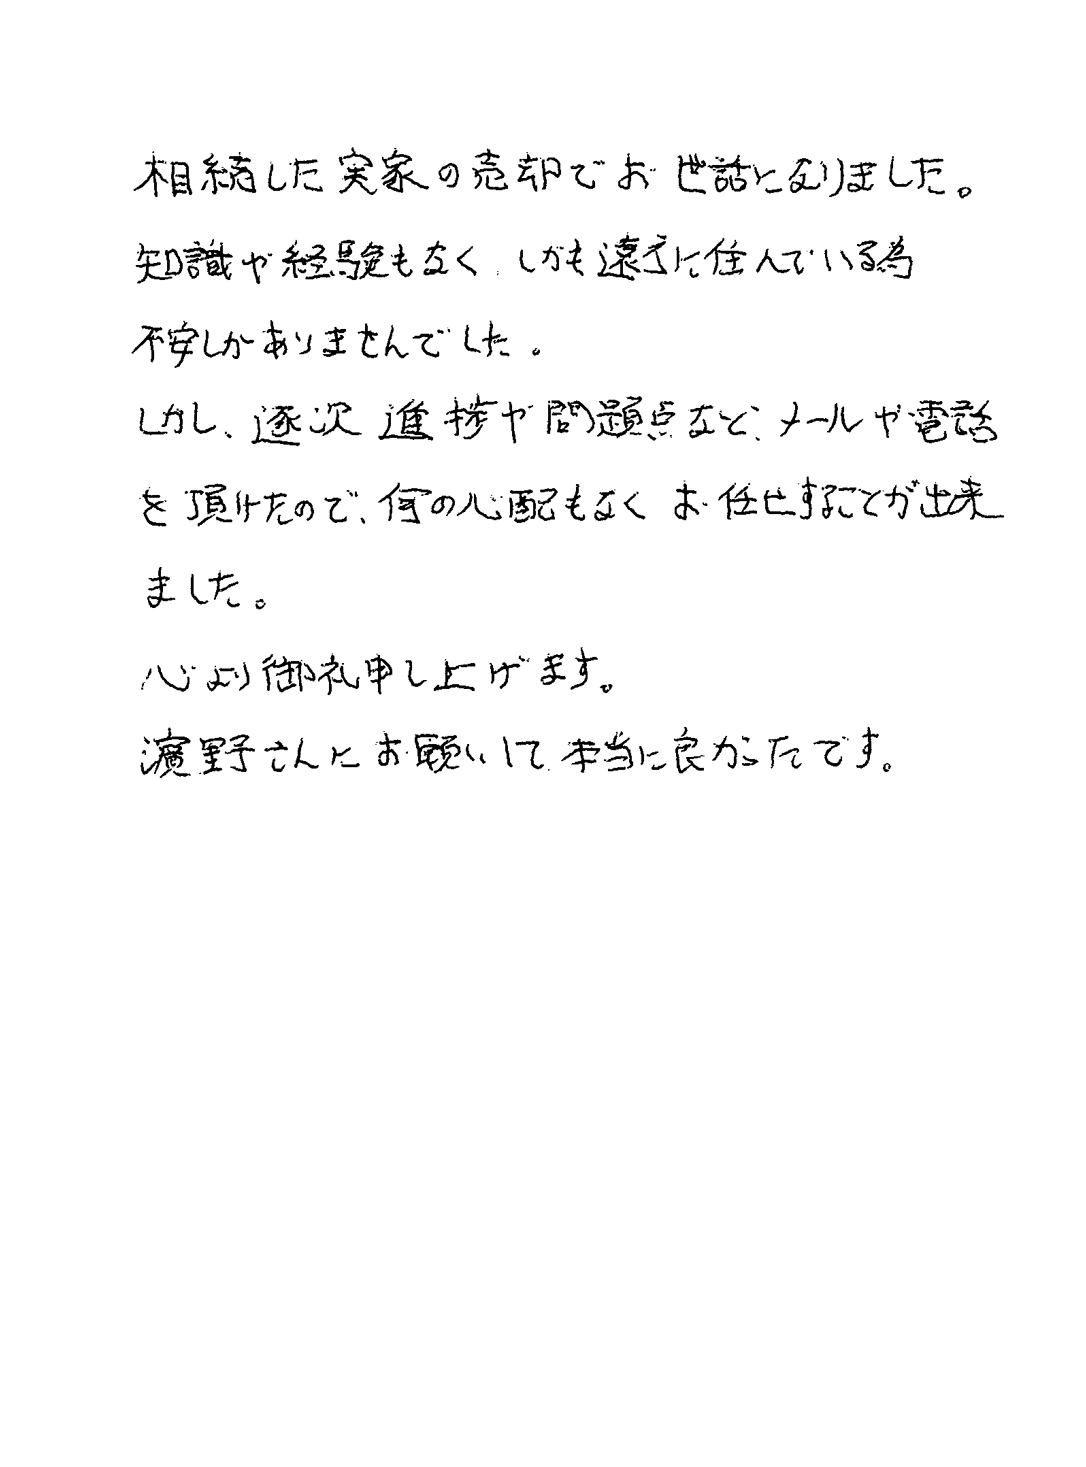 相続した実家の売却でお世話になりました。
知識や経験もなく、しかも遠方に住んでいる為
不安しかありませんでした。
しかし、逐次進捗や問題点など、メールや電話
を頂けたので、何の心配もなくお任せすることが出来
ました。
心より御礼申し上げます。
濱野さんにお願いして本当に良かったです。